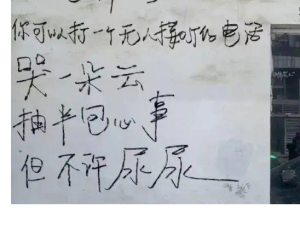 你可以打一个无人接听的电话
哭一朵云
抽半包心事
但不许尿尿